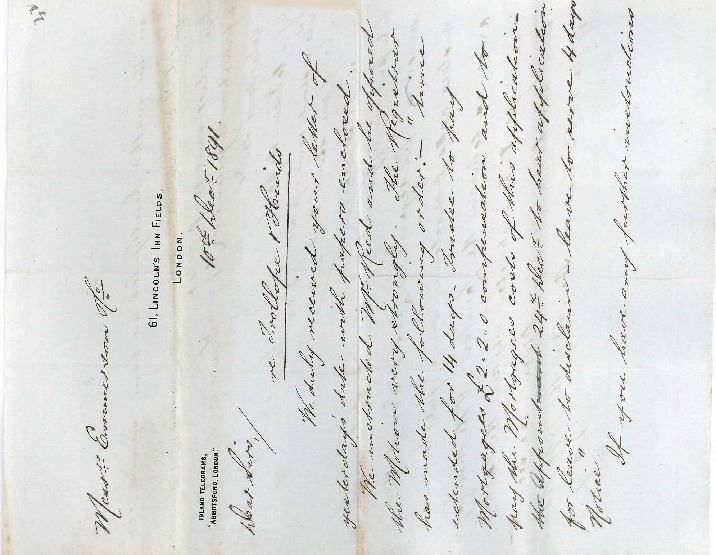 61, LINCOLN'S INN FIELDS,
LONDON.
INLAND TELEGRAMS,
"ABBOTSFORD, LONDON"
10th Decr 1891.
Messrs Emmerson & Co
Dear Sirs,
re Trollope & Hinds
We duly received your letter of
yesterday's date with papers enclosed.
We instructed Mr Reed and he opposed
the Motion very strongly. The Registrar
has made the following order:- "Time
extended for 14 days- Trustee to pay
Mortgagees £2-2-0 compensation and to
pay the Mortgagees costs of this application-
24th Decr to hear application
for leave to disclaim - leave to serve 4 days
Notice"
If you have any further instructions